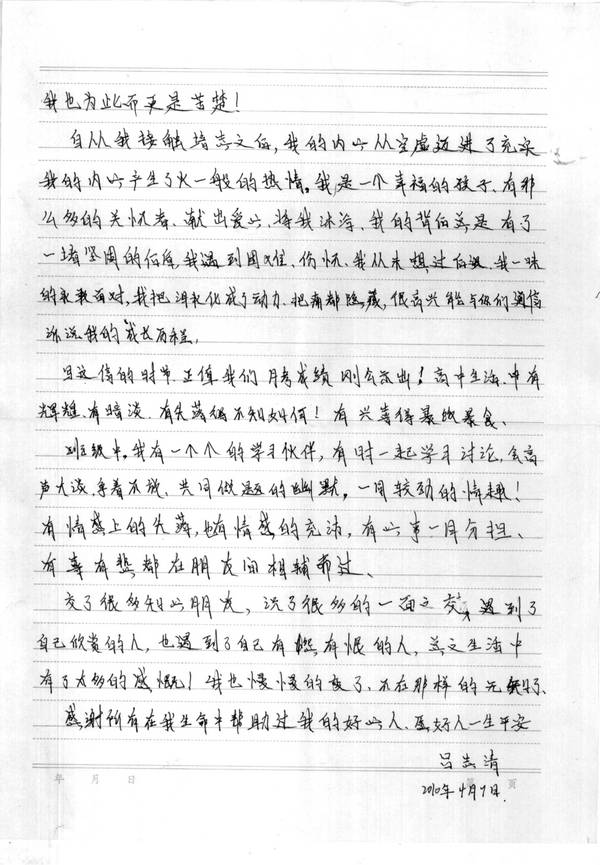 我也为此而更是苦楚！
自从我接触培志之后，我的内心从空虚迈进了充实
我的内心产生了火一般的热情。我是一个幸福的孩子、有那
么多的关怀者、献出爱心、将我沐浴、我的背后总是有了
一堵坚固的后盾，我遇到困难、伤怀、我从未想过后退、我一味
的来面对，我把泪水化成了动力、把痛都隐藏，很高兴能与你们通信
诉说我的成长历程。
写这信的时节，正值我们月考成绩刚公示出！高中生活、中有
辉煌、有暗淡、有失落得不知如何！有兴奋得暴饮暴食、
班级中。我有一个个的学习伙伴，有时一起学习讨论，会高
声大谈，争着不放、共同做题的幽默，一同较劲的情趣！
有情感上的失落，也有情感的充沛，有心事一同分担、
有喜有愁都在朋友间相辅而过、
交了很多知心朋友，识了很多的一面之交，遇到了
自己欣赏的人，也遇到了自己有恨的人，总之生活中
有了太多的感慨！我也慢慢的变了、不在那样的无知了、
感谢所有在我生命中帮助过我的好心人、愿好人一生平安
吕志清
2010年4月9日.
年 月 日 第 页